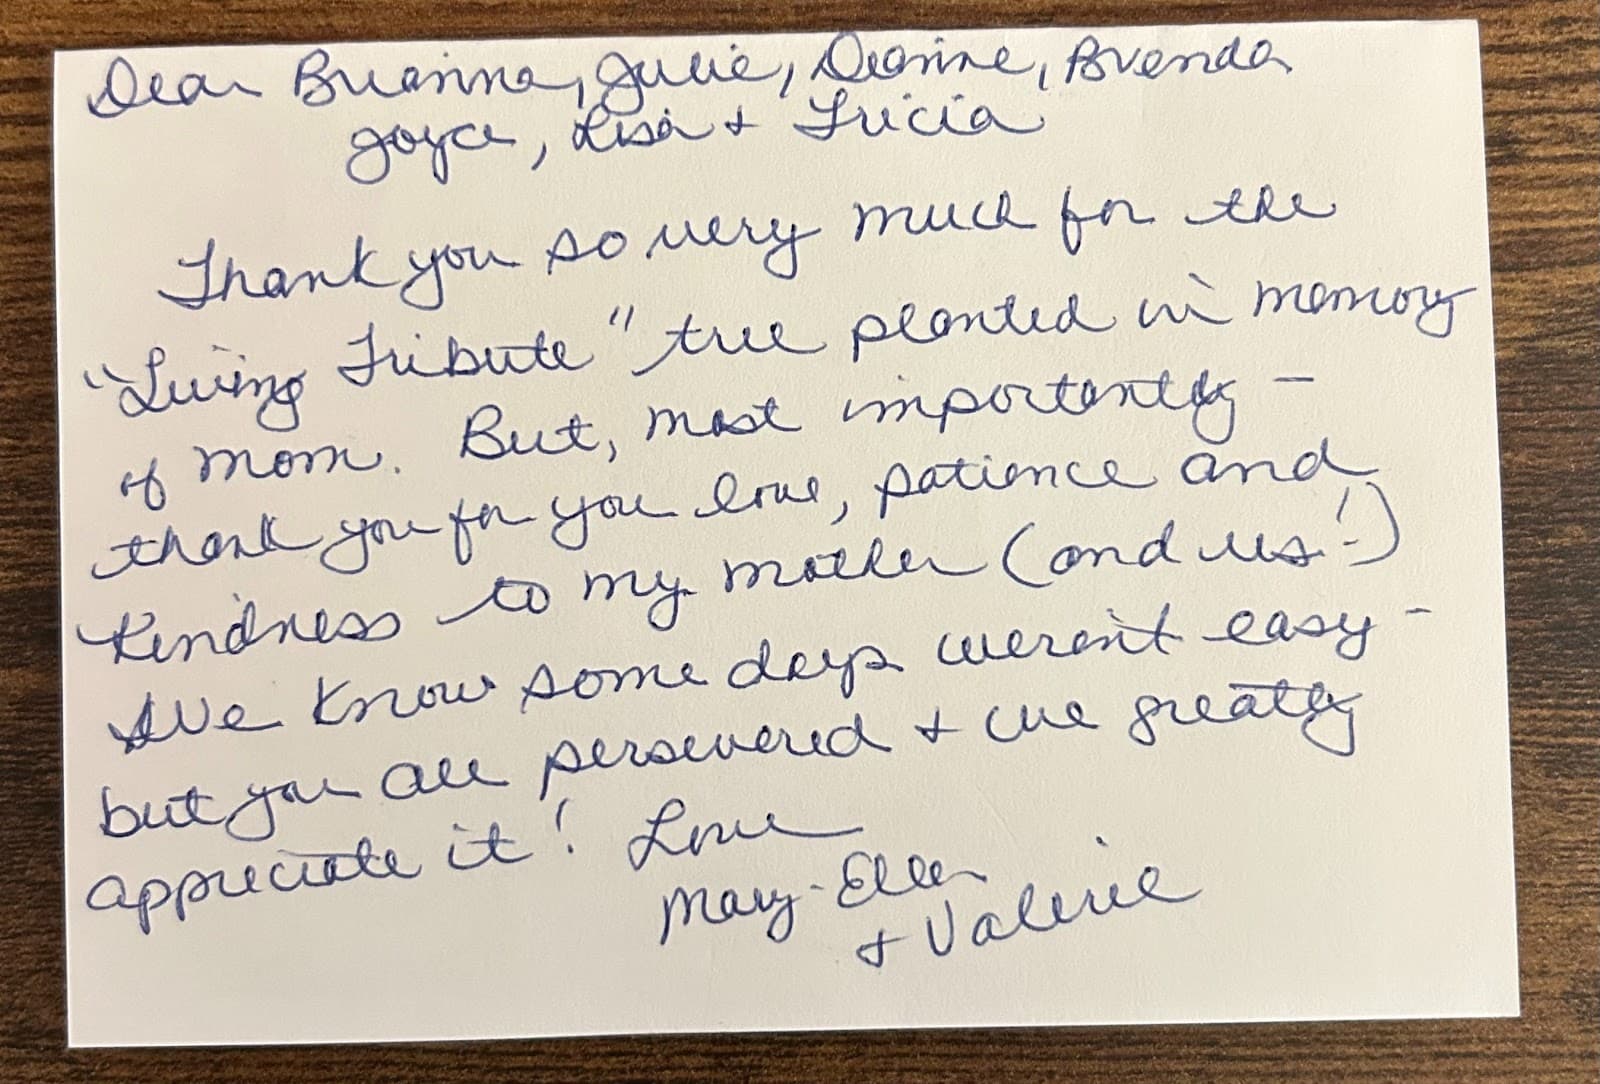 Dear Brianna, Julie, Deanne, Brenda
Joyce, Lisa + Tricia
Thank you so very much for the
"Living Tribute" tree planted in memory
of mom. But, most importantly -
thank you for you love, patience and
kindness to my mother (and us!)
We know some days weren't easy -
but you all persevered + we greatly
appreciate it! Love
Mary-Ellen
+ Valerie